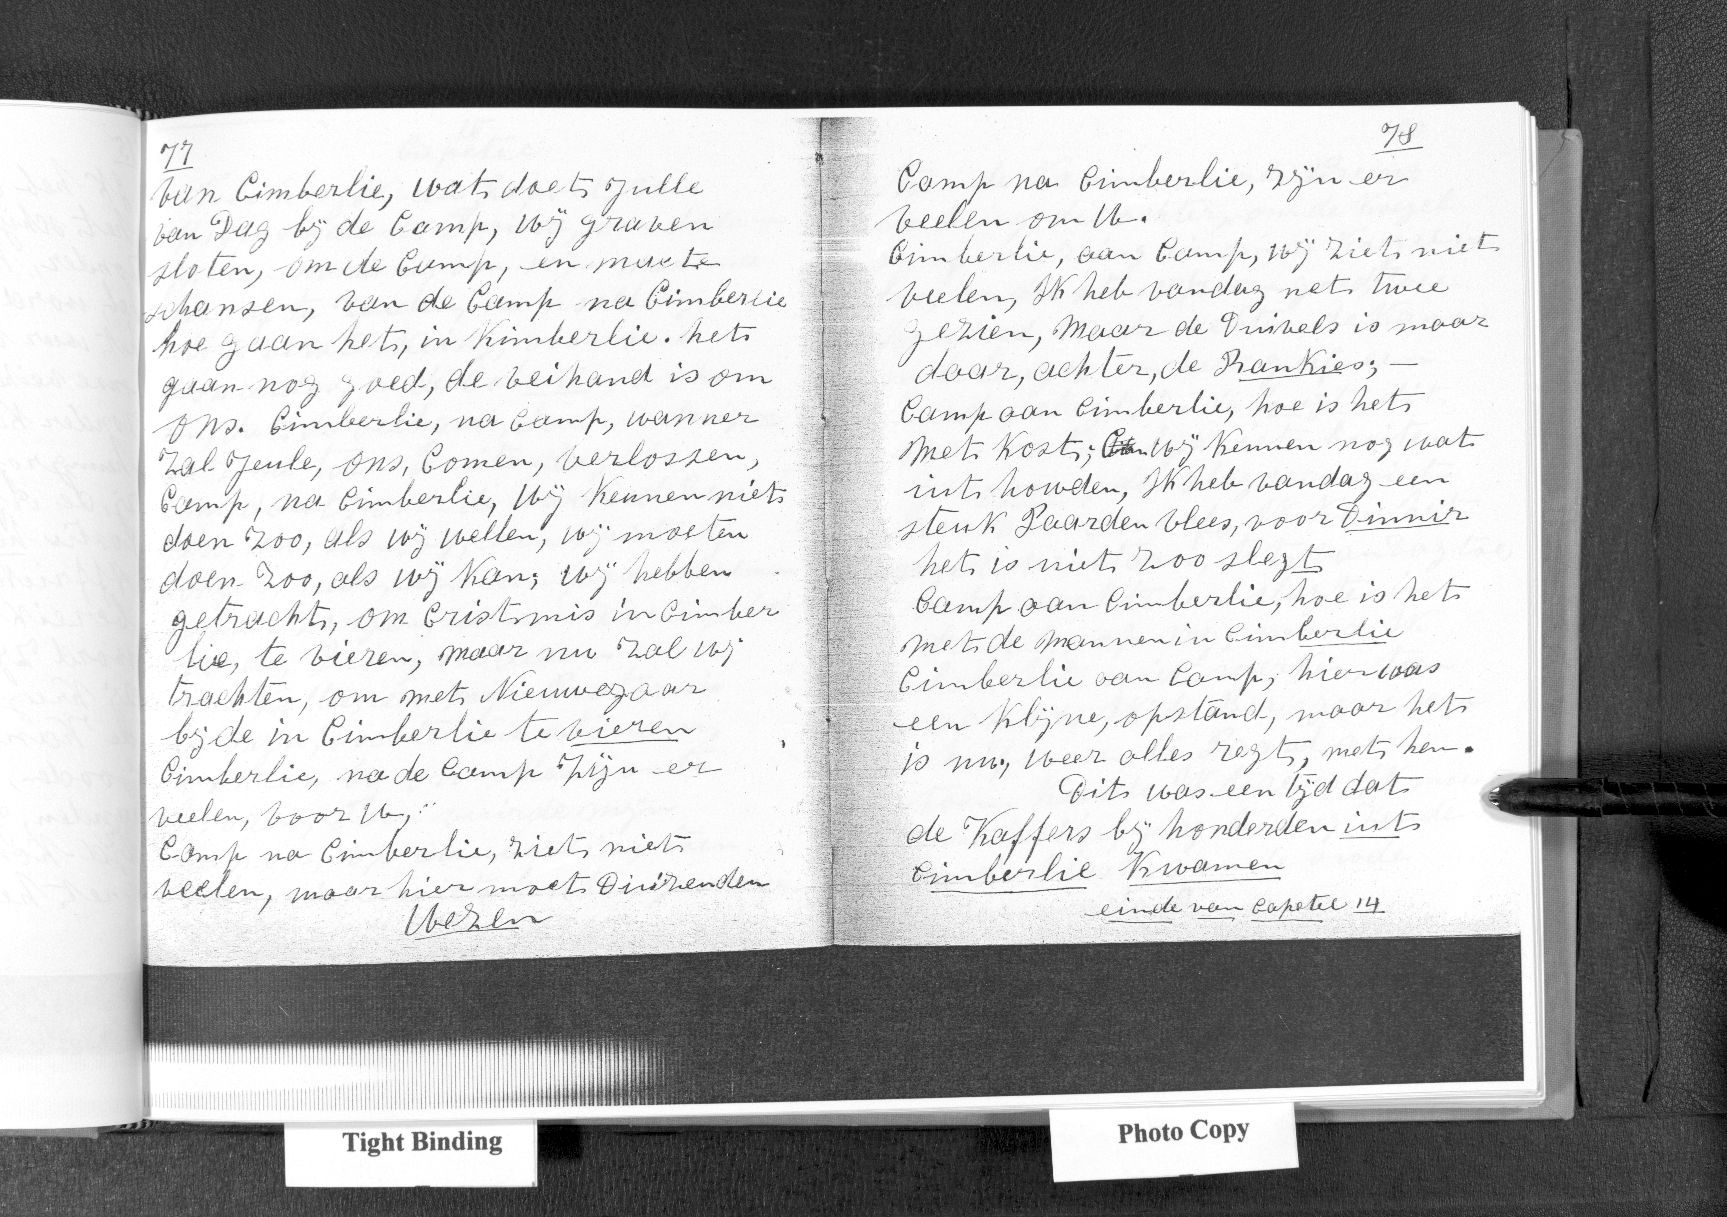 77
van Cimberlie, wat doet Julle
van Dag bij de Camp, wij graven
sloten, om de Camp, en maete
schansen, van de Camp na Cimberlie
hoe gaan het, in Kimberlie. het
gaan nog goed, de veihand is om
ons. Cimberlie, na Camp, wanner
zal Jeule, ons, Comen, verlossen,
Camp, na Cimberlie, wij kennen niet
doen zoo, als wij wellen, wij moeten
doen zoo, als wij kan; wij hebben
getracht, om Cristmis in Cimber
lie, te vieren, maar nu zal wij
trachten, om met Nieuwejaar
bijde in Cimberlie te vieren
Cimberlie, na de Camp zijn er
veelen, voor U,
Camp na Cimberlie, ziet niet
veelen, maar hier moet Duizenden
Wezen
78
Camp na Cimberlie, zijn er
veelen om U.
Cimberlie, aan Camp, wij ziet niet
veelen, Ik heb vandag net twee
gezien, maar de Duivels is maar
daar, achter, de Rankies; —
Camp aan Cimberlie, hoe is het
met kost; wij kennen nog wat
uut houden, Ik heb vandag een
steuk Paarden vlees, voor Dinnir
het is niet zoo slegt
Camp aan Cimberlie, hoe is het
met de mannen in Cimberlie
Cimberlie aan Camp, hier was
een klijne, opstand, maar het
is nu, weer alles regt, met hen.
Dit was een tijd dat
de Kaffers bij honderden uut
Cimberlie Kwamen
einde van Capetel 14
Tight Binding
Photo Copy